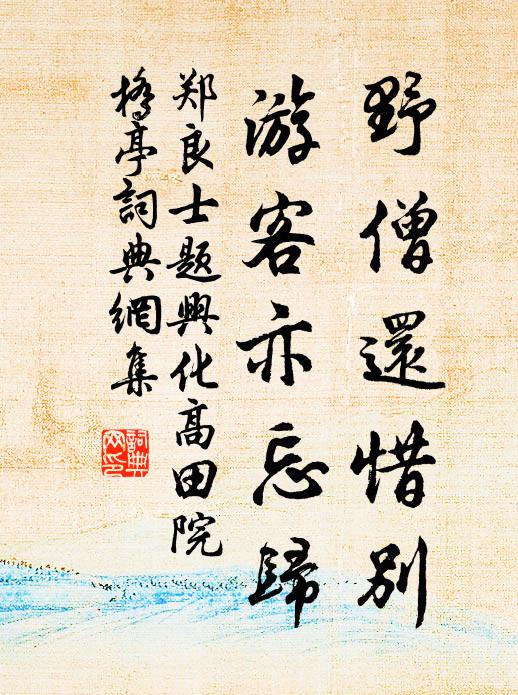 野僧還惜別
游客亦忘歸
郑良士題興化高田院
橋亭詞典網集
詞典
网印